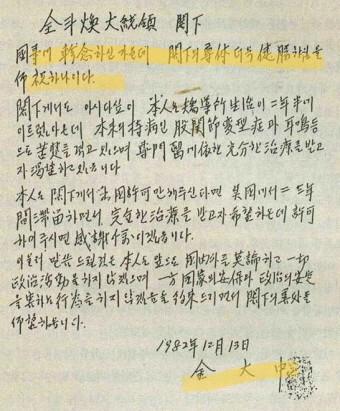 全斗煥大統領 閣下
國事에 軫念하신가운데 閣下의 尊体더욱 健勝하심을
仰祝하나이다.
閣下께서도 아시다싶이 本人은 矯導所生活이 二年半에
이르렀아온데 本來의 持病인 股關節変型症과 耳鳴等
으로 苦楚를 겪고있으며 專門醫에依한 充分한 治療를 받고
자 渴望하고있읍니다
本人은 閣下께서 出國許可만 해주신다면 美國에서 二, 三年
間 滯留하면서 完全한 治療를 받고자 希望하온데 許可
하여주시면 感謝千萬이겠읍니다.
아울러 말씀 드릴것은 本人은 앞으로 國內外를 莫論하고 一切
政治活動을 하지 않겠으며 一方 國家의 安保와 政治의 安定
을 害하는 行為를 하지않겠음을 約束드리면서 閣下의 善處를
仰望하옵니다.
1982年 12月 13日
金 大 中